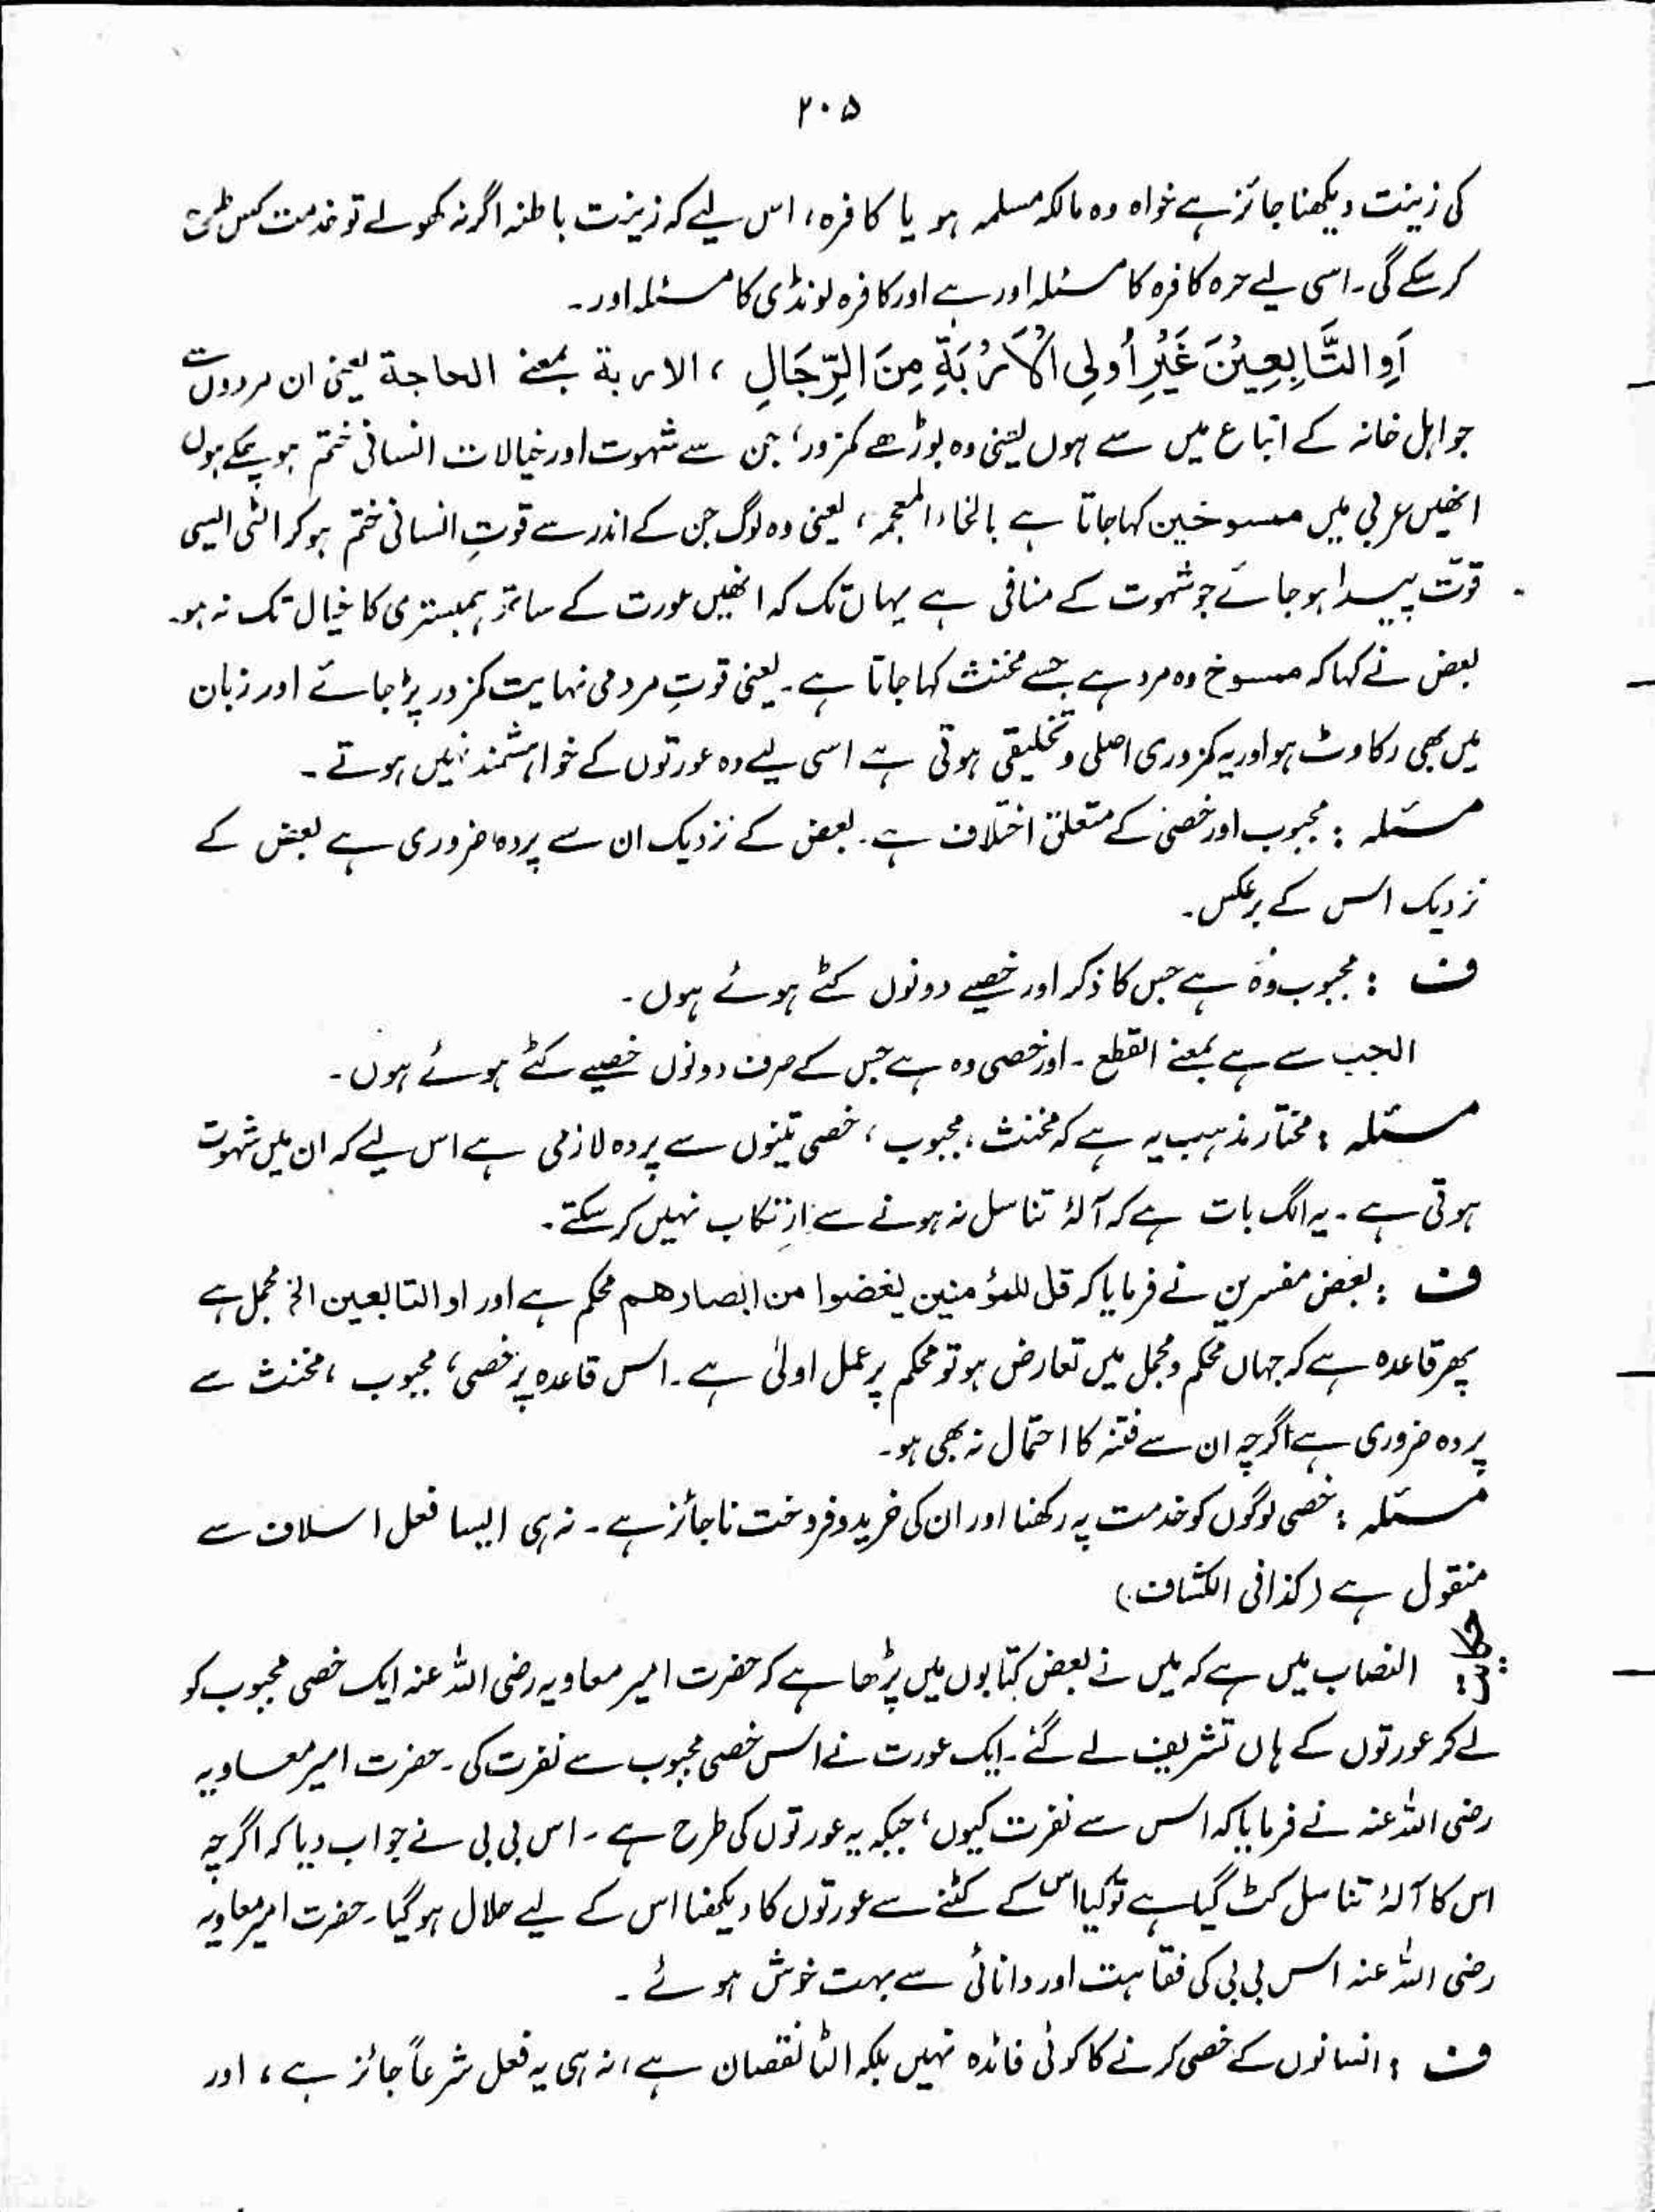 ۲۰۵
کی زینت دیکھنا جائز ہے خواہ وہ مالکہ مسلمہ ہو یا کافرہ، اس لیے کہ زینت باطنہ اگر نہ کھولے تو خدمت کس طرح
کر سکے گی۔ اسی لیے حرہ کافرہ کا مسئلہ اور ہے اور کافرہ لونڈی کا مسئلہ اور۔
اَوِ التَّابِعِیْنَ غَیْرِ اُولِی الْاِرْبَةِ مِنَ الرِّجَالِ ، الاربة بمعنے الحاجة یعنی ان مردوں سے
جو اہل خانہ کے اتباع میں سے ہوں یعنی وہ بوڑھے کمزور، جن سے شہوت اور خیالات انسانی ختم ہو چکے ہوں
انھیں عربی میں ممسوخین کہا جاتا ہے بالخاء المعجمہ، یعنی وہ لوگ جن کے اندر سے قوتِ انسانی ختم ہو کر الٹی ایسی
قوّت پیدا ہو جائے جو شہوت کے منافی ہے یہاں تک کہ انھیں عورت کے ساتھ ہمبستری کا خیال تک نہ ہو۔
بعض نے کہا کہ ممسوخ وہ مرد ہے جسے مخنث کہا جاتا ہے۔ یعنی قوتِ مردمی نہایت کمزور پڑ جائے اور زبان
میں بھی رکاوٹ ہو اور یہ کمزوری اصلی و تخلیقی ہوتی ہے اسی لیے وہ عورتوں کے خواہشمند نہیں ہوتے ۔
مسئلہ : مجبوب اور خصی کے متعلق اختلاف ہے۔ بعض کے نزدیک ان سے پردہ ضروری ہے بعض کے
نزدیک اس کے برعکس۔
ف : مجبوب وُہ ہے جس کا ذکر اور خصیے دونوں کٹے ہوئے ہوں ۔
الجب سے ہے بمعنے القطع ۔ اور خصی وہ ہے جس کے صرف دونوں خصیے کٹے ہوئے ہوں ۔
مسئلہ : مختار مذہب یہ ہے کہ مخنث، مجبوب ، خصی تینوں سے پردہ لازمی ہے اس لیے کہ ان میں شہوت
ہوتی ہے ۔ یہ الگ بات ہے کہ آلۂ تناسل نہ ہونے سے ارتکاب نہیں کر سکتے ۔
ف : بعض مفسرین نے فرمایا کہ قل للمؤمنین یغضوا من ابصارھم محکم ہے اور او التابعین الخ مجمل ہے
پھر قاعدہ ہے کہ جہاں محکم و مجمل میں تعارض ہو تو محکم پر عمل اولیٰ ہے ۔ اس قاعدہ پر خصی، مجبوب ، مخنث سے
پردہ ضروری ہے اگرچہ ان سے فتنہ کا احتمال نہ بھی ہو۔
مسئلہ : خصی لوگوں کو خدمت پہ رکھنا اور ان کی خرید و فروخت ناجائز ہے ۔ نہ ہی ایسا فعل اسلاف سے
منقول ہے (کذا فی الکشاف)
النصاب میں ہے کہ میں نے بعض کتابوں میں پڑھا ہے کہ حضرت امیر معاویہ رضی اللہ عنہ ایک خصی مجبوب کو
لے کر عورتوں کے ہاں تشریف لے گئے ۔ ایک عورت نے اس خصی مجبوب سے نفرت کی ۔ حضرت امیر معاویہ
رضی اللہ عنہ نے فرمایا کہ اس سے نفرت کیوں، جبکہ یہ عورتوں کی طرح ہے ۔ اس بی بی نے جواب دیا کہ اگرچہ
اس کا آلۂ تناسل کٹ گیا ہے تو کیا اس کے کٹنے سے عورتوں کا دیکھنا اس کے لیے حلال ہو گیا ۔ حضرت امیر معاویہ
رضی اللہ عنہ اس بی بی کی فقاہت اور دانائی سے بہت خوش ہوئے ۔
ف : انسانوں کے خصی کرنے کا کوئی فائدہ نہیں بلکہ الٹا نقصان ہے، نہ ہی یہ فعل شرعاً جائز ہے ، اور